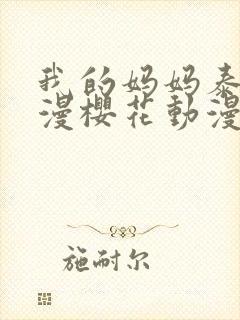 我的妈妈泰
漫櫻花動漫
施耐尔